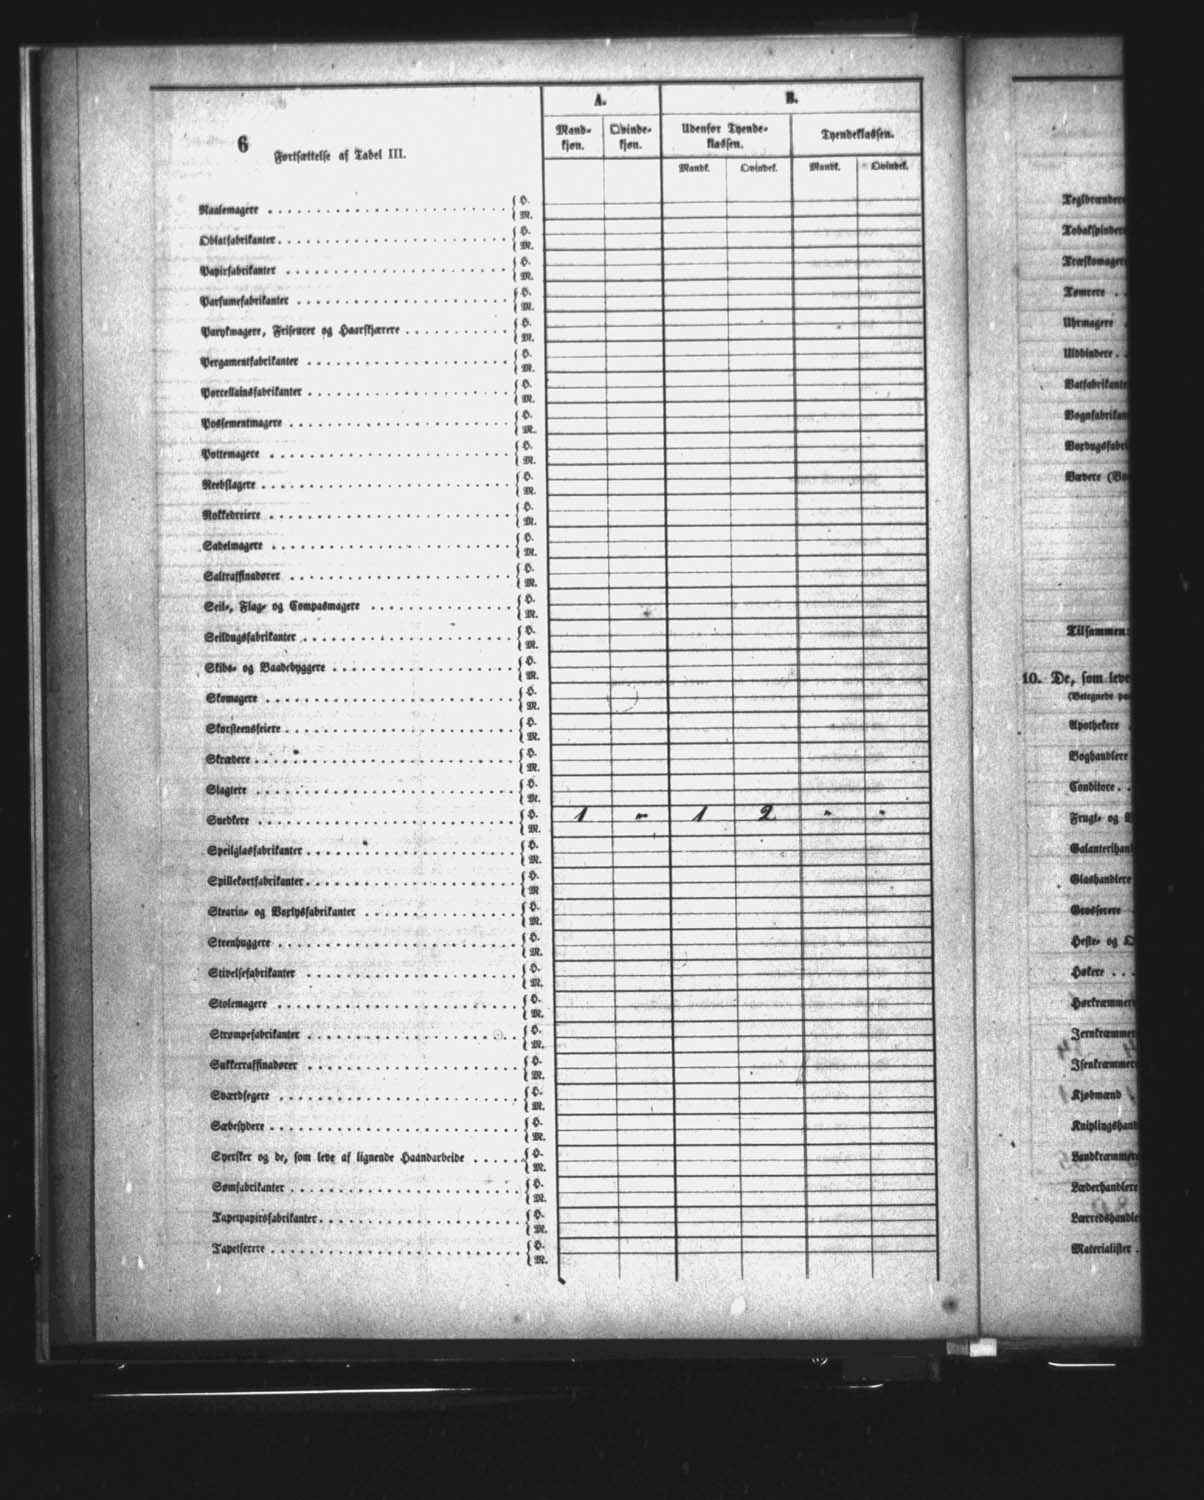 A. B.
6 Fortsættelse af Tabel III.
Mand- kjøn. Qvinde- kjøn. Udenfor Tyende- klassen. Tyendeklassen.
Mandk. Qvindek. Mandk. Qvindek.
Naalemagere { H. M.
Oblatfabrikanter { H. M.
Papirfabrikanter { H. M.
Parfumefabrikanter { H. M.
Parykmagere, Friseurer og Haarskjærere { H. M.
Pergamentfabrikanter { H. M.
Porcellainsfabrikanter { H. M.
Possementmagere { H. M.
Pottemagere { H. M.
Reebslagere { H. M.
Rokkedreiere { H. M.
Sadelmagere { H. M.
Saltraffinadører { H. M.
Seil-, Flag- og Compasmagere { H. M.
Seildugsfabrikanter { H. M.
Skibs- og Baadebyggere { H. M.
Skomagere { H. M.
Skorsteensfeiere { H. M.
Skrædere { H. M.
Slagtere { H. M.
Snedkere { H. M. 1 " 1 2 " "
Speilglasfabrikanter { H. M.
Spillekortfabrikanter { H. M
Stearin- og Voxlysfabrikanter { H. M.
Steenhuggere { H. M.
Stivelsefabrikanter { H. M.
Stolemagere { H. M.
Strømpefabrikanter { H. M.
Sukkerraffinadører { H. M.
Sværdfegere { H. M.
Sæbesydere { H. M.
Syersker og de, som leve af lignende Haandarbeide { H. M.
Sømfabrikanter { H. M.
Tapetpapirsfabrikanter { H. M.
Tapetserere { H. M.
Teglbrændere
Tobakspindere
Træskomagere
Tømrere
Uhrmagere
Uldbindere
Vatfabrikante
Vognfabrikan
Voxdugsfabri
Vævere (Bo
Tilsammen:
10. De, som leve
(Betegnede pa
Apothekere
Boghandlere
Conditore
Frugt- og
Galanterihan
Glashandlere
Grosserere
Heste- og
Høkere
Hørkræmmer
Jernkræmmer
Isenkræmmere
Kjøbmænd
Kniplingshand
Landkræmmere
Læderhandlere
Lærredshandle
Materialister